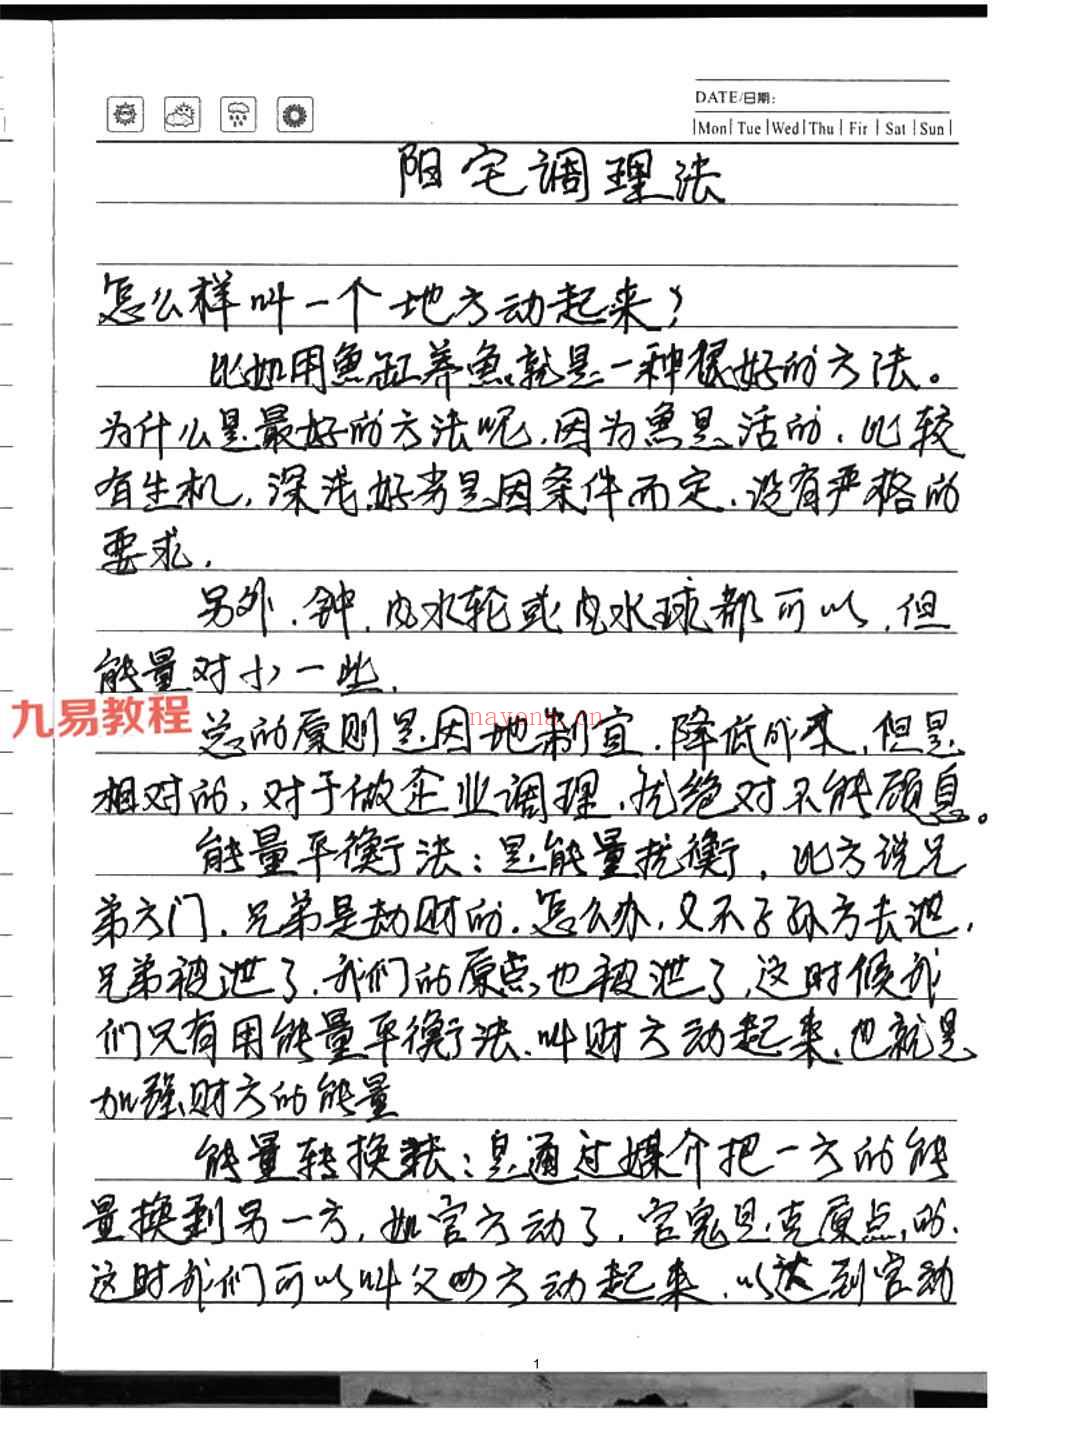 DATE/日期:
Mon Tue Wed Thu Fir Sat Sun
阳宅调理法
怎么样叫一个地方动起来?
比如用鱼缸养鱼,就是一种很好的方法。
为什么是最好的方法呢,因为鱼是活的,比较
有生机,深浅,好劣是因条件而定,没有严格的
要求,
另外,钟,内水轮或内水球都可以,但
能量对小一些,
九易教程
nayona.cn
总的原则是因地制宜,降低成本,但是
相对的,对于做企业调理,就绝对不能顾惜。
能量平衡法:是能量找衡,比方说兄
弟方门,兄弟是劫财的,怎么办,又不子孙方去泄,
兄弟被泄了,我们的原点也被泄了,这时候我
们只有用能量平衡法,叫财方动起来,也就是
加强财方的能量
能量转换法:是通过媒介把一方的能
量换到另一方,如官方动了,官鬼是克原点的,
这时我们可以叫父母方动起来,以达到官动
1